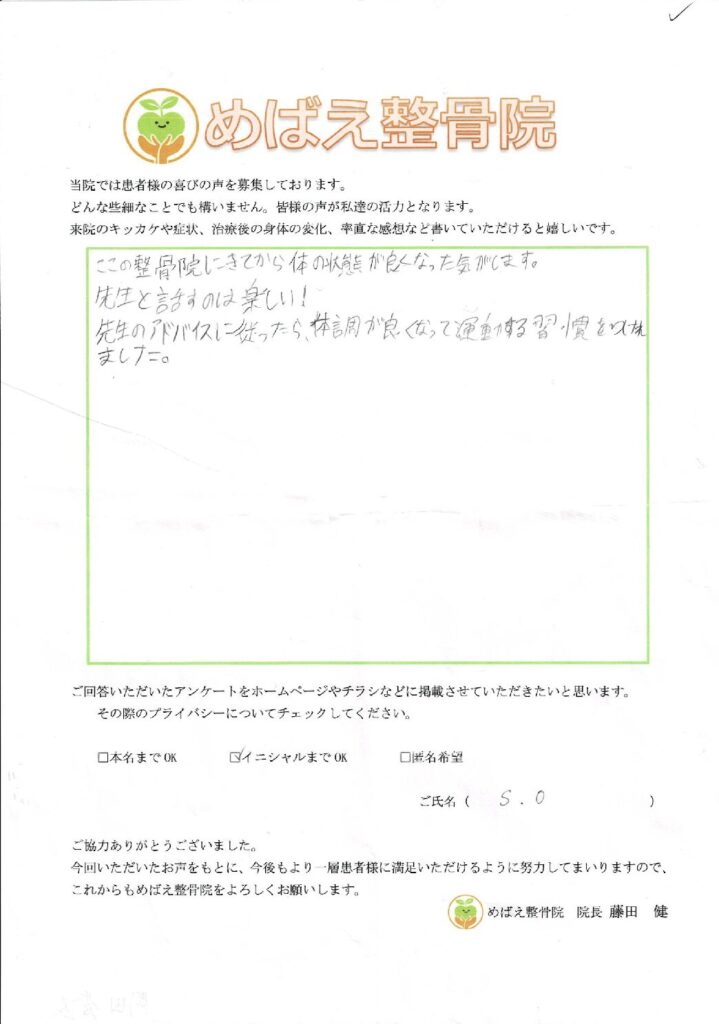 めばえ整骨院
当院では患者様の喜びの声を募集しております。
どんな些細なことでも構いません。皆様の声が私達の活力となります。
来院のキッカケや症状、治療後の身体の変化、率直な感想など書いていただけると嬉しいです。
ここの整骨院にきてから体の状態が良くなった気がします。
先生と話すのは楽しい!
先生のアドバイスに従ったら、体調が良くなって運動する習慣を
ました。
ご回答いただいたアンケートをホームページやチラシなどに掲載させていただきたいと思います。
その際のプライバシーについてチェックしてください。
□本名までOK ☑イニシャルまでOK □匿名希望
ご氏名( S.O )
ご協力ありがとうございました。
今回いただいたお声をもとに、今後もより一層患者様に満足いただけるように努力してまいりますので、
これからもめばえ整骨院をよろしくお願いします。
めばえ整骨院 院長 藤田 健